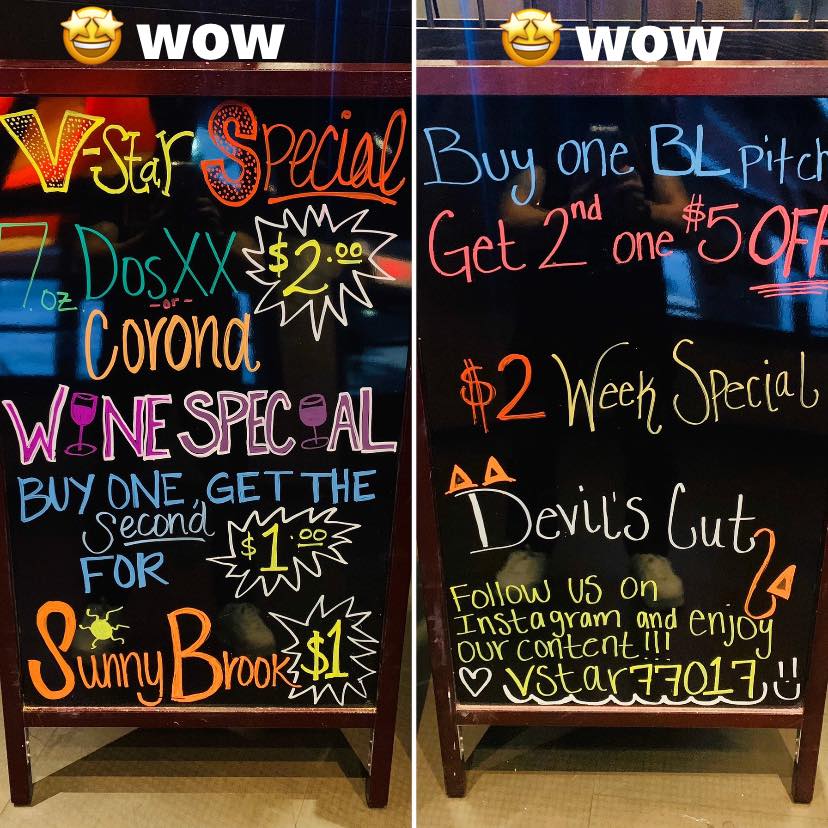 WOW
V-Star Special
7 oz. DosXX $2.00
-or-
Corona
WINE SPECIAL
BUY ONE, GET THE
Second
FOR $1.00
Sunny Brook $1
WOW
Buy one BL pitch
Get 2nd one $5 OFF
$2 Week Special
Devil's Cut
Follow us on
Instagram and enjoy
our content!!!
vstar77017